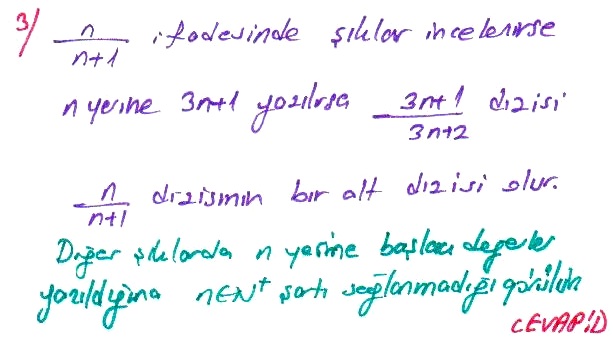 3/ n/(n+1) ifadesinde şıklar incelenirse
n yerine 3n+1 yazılırsa (3n+1)/(3n+2) dizisi
n/(n+1) dizisinin bir alt dizisi olur.
Diğer şıklarda n yerine başka değerler
yazıldığına n∈N⁺ şartı sağlanmadığı görülür
CEVAP:D